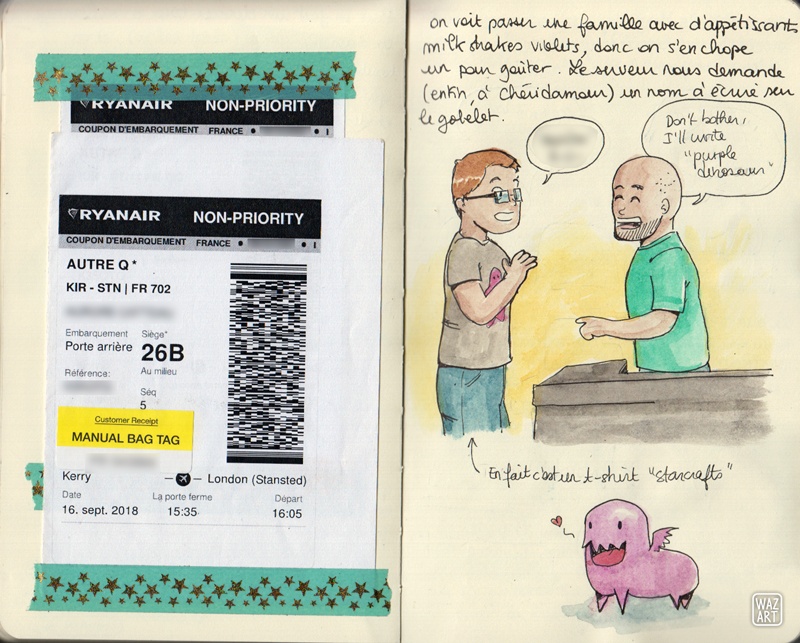 RYANAIR NON-PRIORITY
COUPON D'EMBARQUEMENT FRANCE
RYANAIR NON-PRIORITY
COUPON D'EMBARQUEMENT FRANCE
AUTRE Q *
KIR - STN | FR 702
Embarquement Siège*
Porte arrière 26B
Au milieu
Référence:
Séq
5
Customer Receipt
MANUAL BAG TAG
Kerry London (Stansted)
Date La porte ferme Départ
16. sept. 2018 15:35 16:05
on voit passer une famille avec d'appétissants
milk shakes violets, donc on s'en chope
un pour goûter. Le serveur nous demande
(enfin, à Chéridamour) un nom à écrire sur
le gobelet.
Don't bother,
I'll write
"purple
dinosaur"
En fait c'est un t-shirt "starcrafts"
WAZ
ART